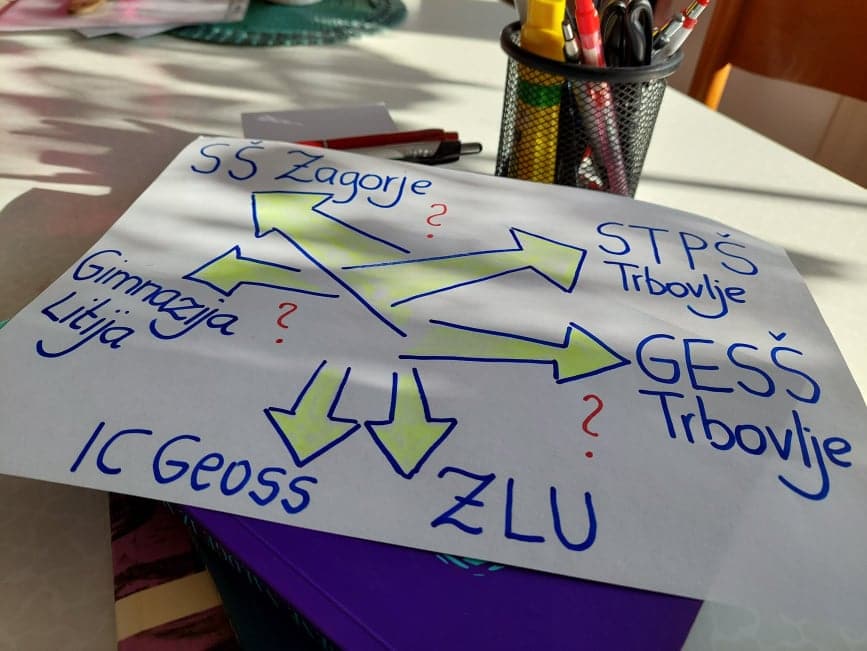 SŠ Zagorje
?
STPŠ
Trbovlje
Gimnazija
Litija
?
GESŠ
Trbovlje
?
IC Geoss
ZLU